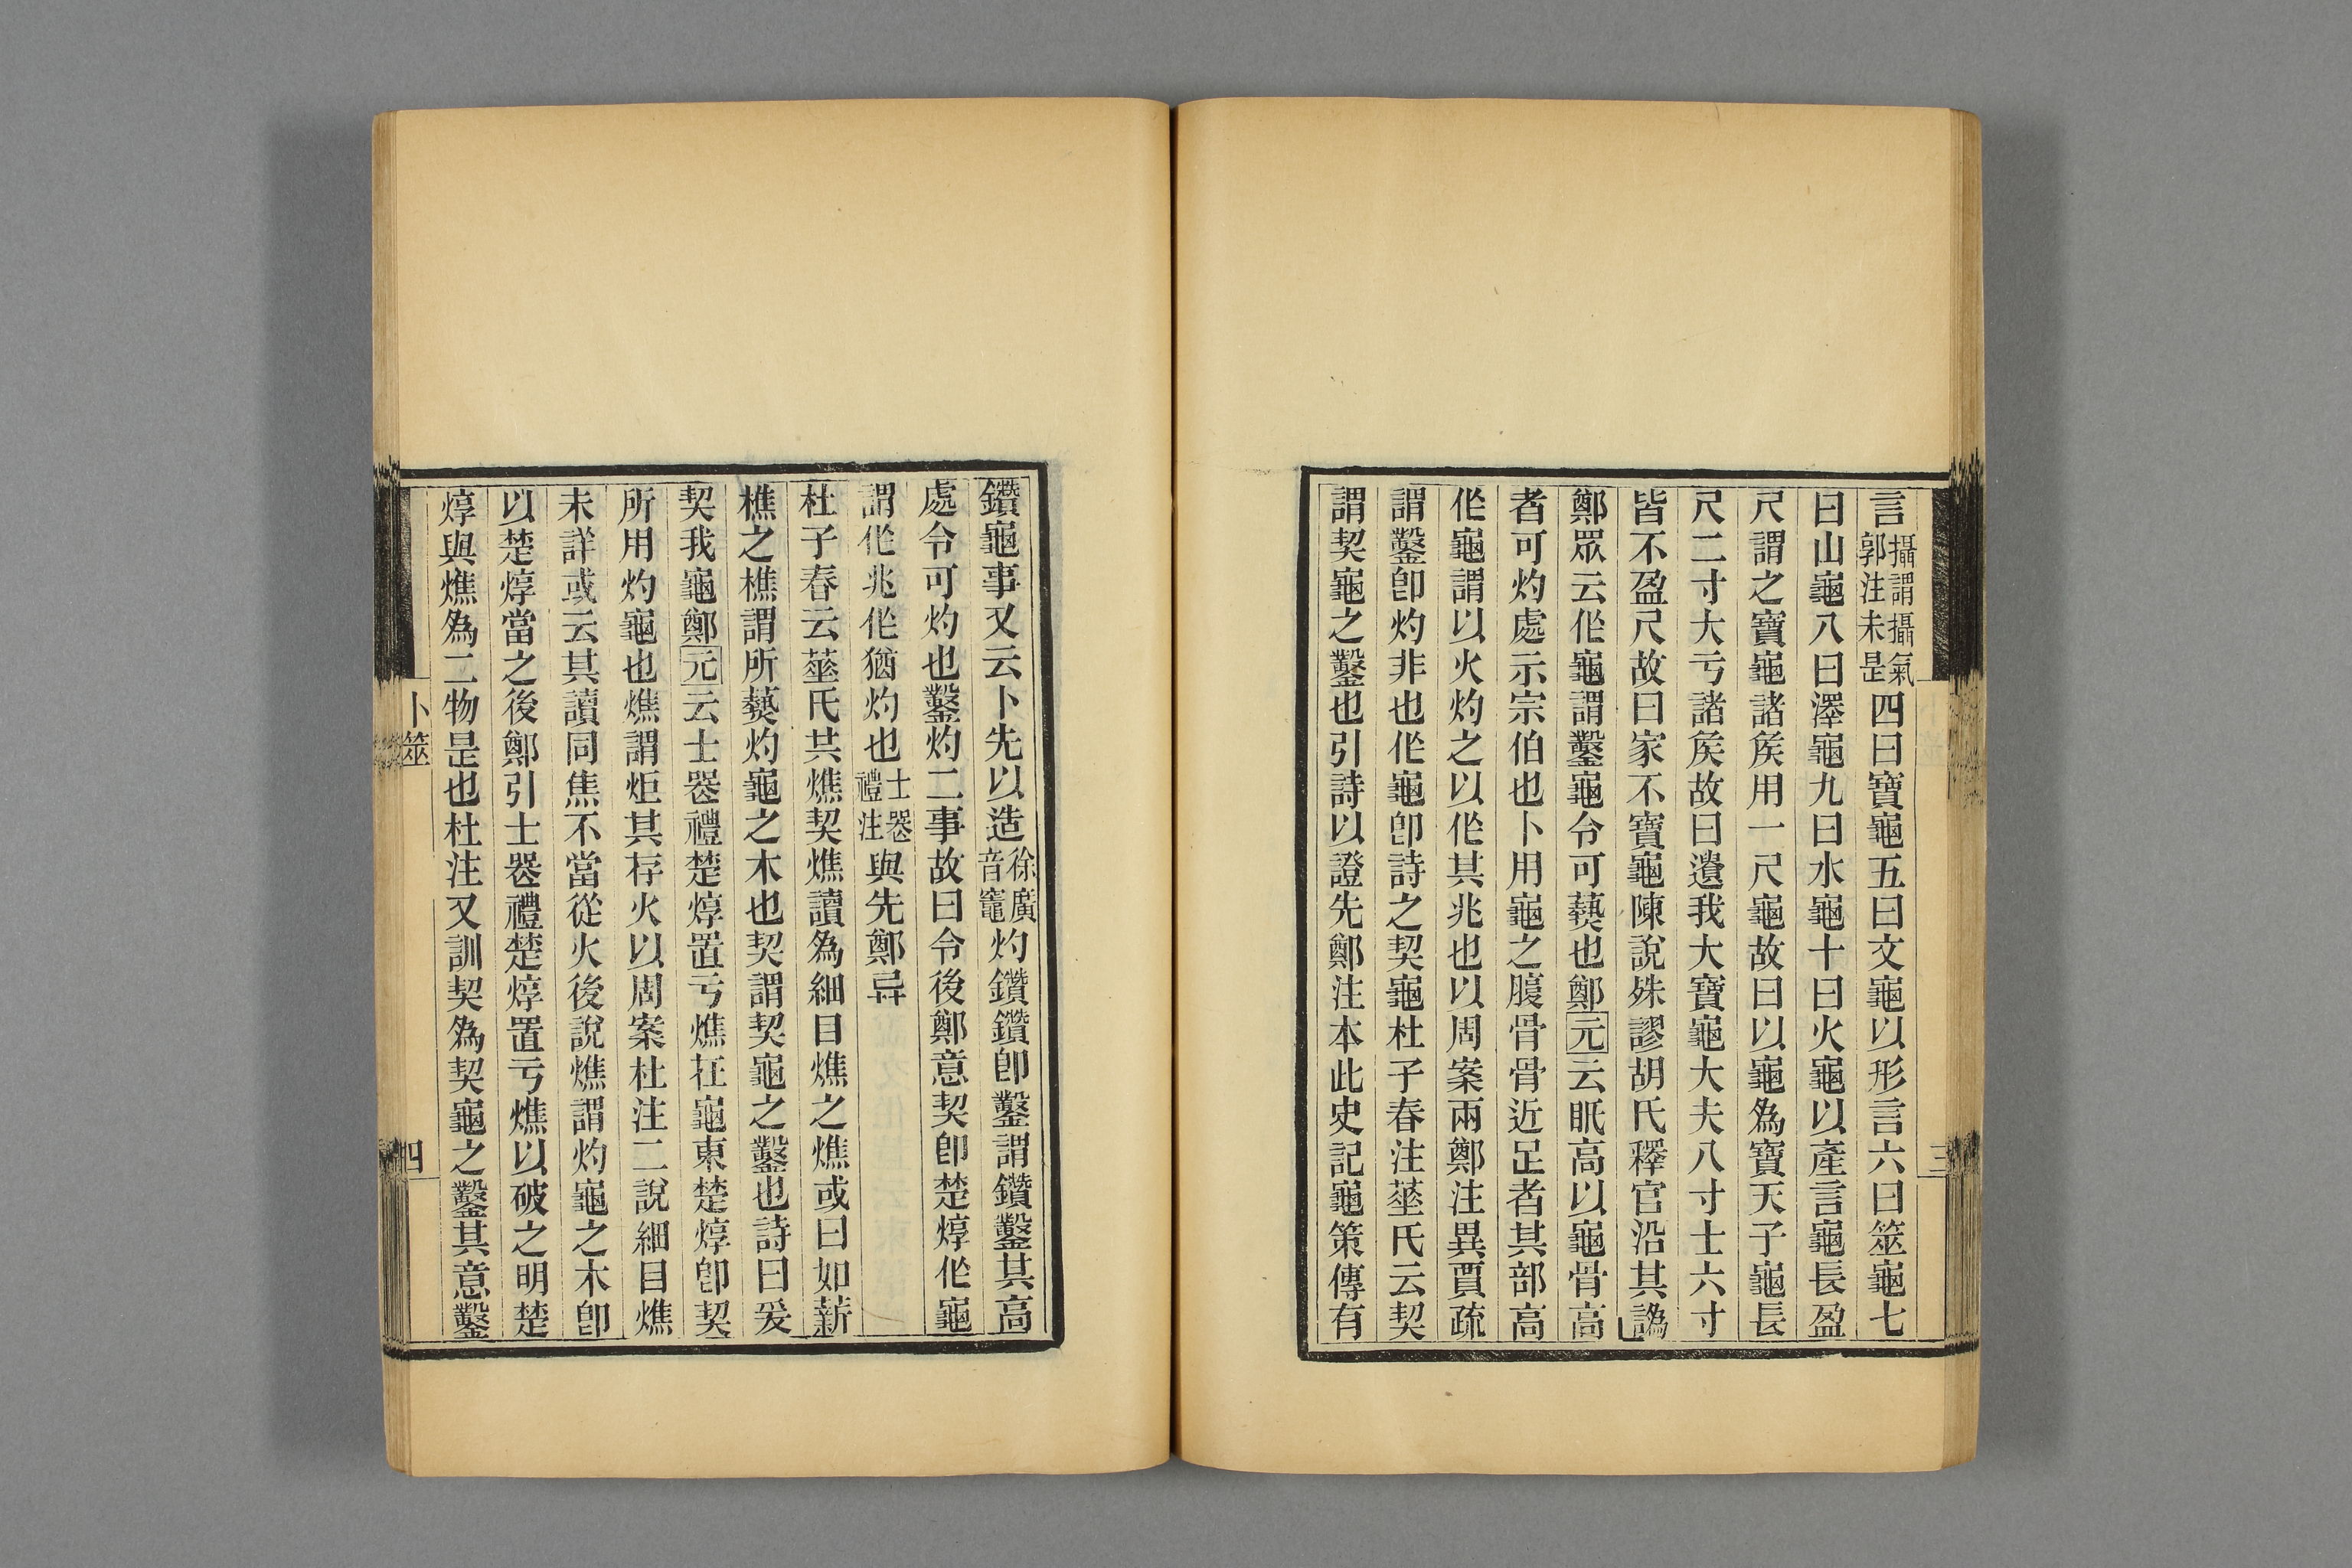 言攝謂攝氣郭注未是四曰寶龜五曰文龜以形言六曰筮龜七
曰山龜八曰澤龜九曰水龜十曰火龜以產言龜長盈
尺謂之寶龜諸矦用一尺龜故曰以龜為寶天子龜長
尺二寸大亏諸矦故曰遺我大寶龜大夫八寸士六寸
皆不盈尺故曰家不寶龜陳說殊謬胡氏釋官沿其譌
鄭眾云作龜謂鑿龜令可爇也鄭元云眂高以龜骨高
者可灼處示宗伯也卜用龜之腹骨骨近足者其部高
作龜謂以火灼之以作其兆也以周案兩鄭注異賈疏
謂鑿卽灼非也作龜卽詩之契龜杜子春注菙氏云契
謂契龜之鑿也引詩以證先鄭注本此史記龜策傳有
三
鑽龜事又云卜先以造徐廣音竈灼鑽鑽卽鑿謂鑽鑿其高
處令可灼也鑿灼二事故曰令後鄭意契卽楚焞作龜
謂作兆作猶灼也士䘮禮注與先鄭异
杜子春云菙氏共燋契燋讀為細目燋之燋或曰如薪
樵之樵謂所爇灼龜之木也契謂契龜之鑿也詩曰爰
契我龜鄭元云士䘮禮楚焞置亏燋在龜東楚焞卽契
所用灼龜也燋謂炬其存火以周案杜注二說細目燋
未詳或云其讀同焦不當從火後說燋謂灼龜之木卽
以楚焞當之後鄭引士䘮禮楚焞置亏燋以破之明楚
焞與燋為二物是也杜注又訓契為契龜之鑿其意鑿
卜筮
四